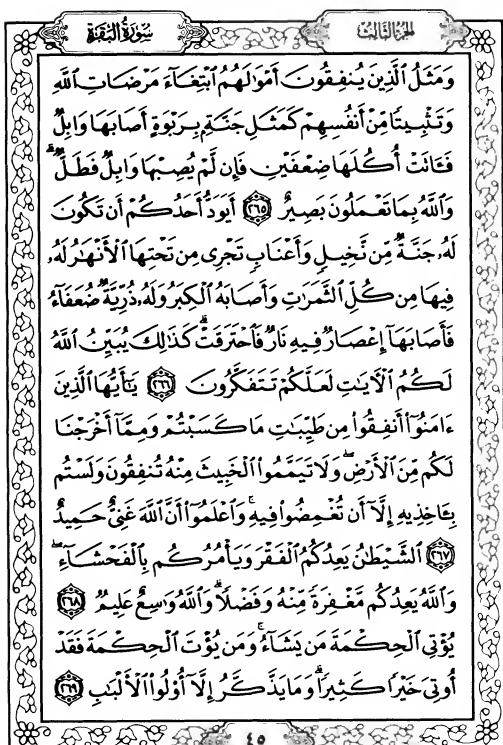 سُورَةُ البَقَرَةِ الجُزْءُ الثَّالِثُ
وَمَثَلُ ٱلَّذِينَ يُنفِقُونَ أَمْوَٰلَهُمُ ٱبْتِغَآءَ مَرْضَاتِ ٱللَّهِ
وَتَثْبِيتًا مِّنْ أَنفُسِهِمْ كَمَثَلِ جَنَّةٍۭ بِرَبْوَةٍ أَصَابَهَا وَابِلٌ
فَـَٔاتَتْ أُكُلَهَا ضِعْفَيْنِ فَإِن لَّمْ يُصِبْهَا وَابِلٌ فَطَلٌّ ۗ
وَٱللَّهُ بِمَا تَعْمَلُونَ بَصِيرٌ ٢٦٥ أَيَوَدُّ أَحَدُكُمْ أَن تَكُونَ
لَهُۥ جَنَّةٌ مِّن نَّخِيلٍ وَأَعْنَابٍ تَجْرِى مِن تَحْتِهَا ٱلْأَنْهَٰرُ لَهُۥ
فِيهَا مِن كُلِّ ٱلثَّمَرَٰتِ وَأَصَابَهُ ٱلْكِبَرُ وَلَهُۥ ذُرِّيَّةٌ ضُعَفَآءُ
فَأَصَابَهَآ إِعْصَارٌ فِيهِ نَارٌ فَٱحْتَرَقَتْ ۗ كَذَٰلِكَ يُبَيِّنُ ٱللَّهُ
لَكُمُ ٱلْـَٔايَٰتِ لَعَلَّكُمْ تَتَفَكَّرُونَ ٢٦٦ يَٰٓأَيُّهَا ٱلَّذِينَ
ءَامَنُوٓا۟ أَنفِقُوا۟ مِن طَيِّبَٰتِ مَا كَسَبْتُمْ وَمِمَّآ أَخْرَجْنَا
لَكُم مِّنَ ٱلْأَرْضِ ۖ وَلَا تَيَمَّمُوا۟ ٱلْخَبِيثَ مِنْهُ تُنفِقُونَ وَلَسْتُم
بِـَٔاخِذِيهِ إِلَّآ أَن تُغْمِضُوا۟ فِيهِ ۚ وَٱعْلَمُوٓا۟ أَنَّ ٱللَّهَ غَنِىٌّ حَمِيدٌ
٢٦٧ ٱلشَّيْطَٰنُ يَعِدُكُمُ ٱلْفَقْرَ وَيَأْمُرُكُم بِٱلْفَحْشَآءِ ۖ
وَٱللَّهُ يَعِدُكُم مَّغْفِرَةً مِّنْهُ وَفَضْلًا ۗ وَٱللَّهُ وَٰسِعٌ عَلِيمٌ ٢٦٨
يُؤْتِى ٱلْحِكْمَةَ مَن يَشَآءُ ۚ وَمَن يُؤْتَ ٱلْحِكْمَةَ فَقَدْ
أُوتِىَ خَيْرًا كَثِيرًا ۗ وَمَا يَذَّكَّرُ إِلَّآ أُو۟لُوا۟ ٱلْأَلْبَٰبِ ٢٦٩
٤٥